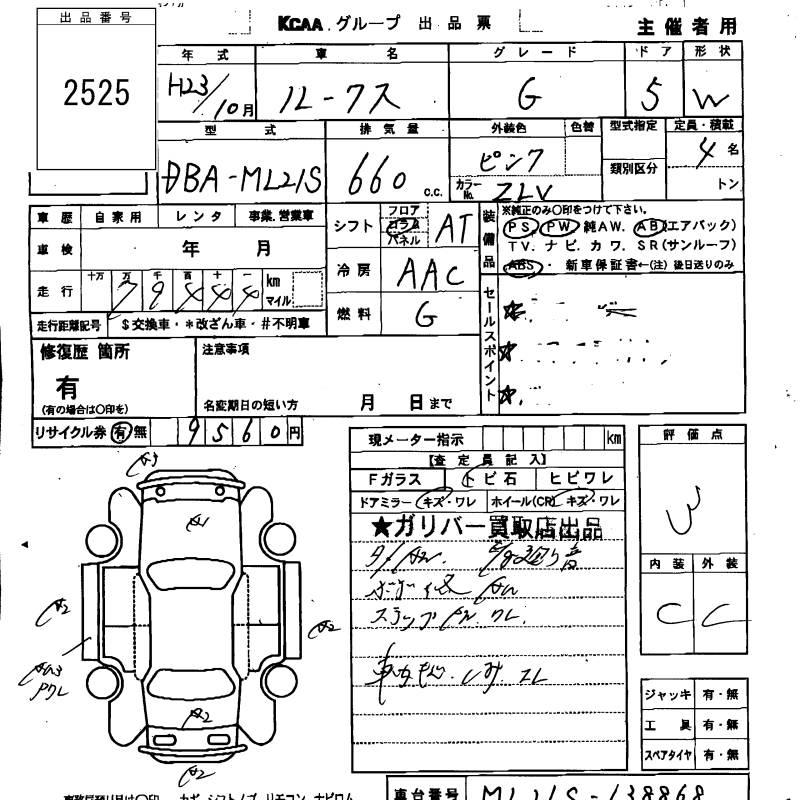 出品番号
2525
KCAA.グループ 出品票
主催者用
年式 車名 グレード ドア 形状
H23/10月 ルークス G 5 W
型式 排気量 外装色 色替 型式指定 定員・積載
DBA-ML21S 660 c.c. ピンク 4名
類別区分
カラーNo. ZLV トン
車歴 自家用 レンタ 事業.営業車
シフト フロア コラム パネル AT
装備品 ※純正のみ〇印をつけて下さい。
PS, PW, 純AW. AB(エアバック)
TV. ナビ. カワ. SR(サンルーフ)
ABS・ 新車保証書←(注)後日送りのみ
車検 年 月
冷房 AAC
走行 十万 万 千 百 十 一
79444 km マイル
燃料 G
セールスポイント
走行距離記号 $交換車・*改ざん車・#不明車
修復歴 箇所
有
(有の場合は〇印を)
注意事項
名変期日の短い方 月 日まで
リサイクル券 有 無 9560円
現メーター指示 km
【査定員記入】
Fガラス トビ石 ヒビワレ
ドアミラー キズ・ワレ ホイール(CR) キズ・ワレ
★ガリバー買取店出品
評価点
3
内装 外装
C C
A3
A1
A2
A2
A2
A2
ジャッキ 有・無
工具 有・無
スペアタイヤ 有・無
車台番号 ML21S-138868